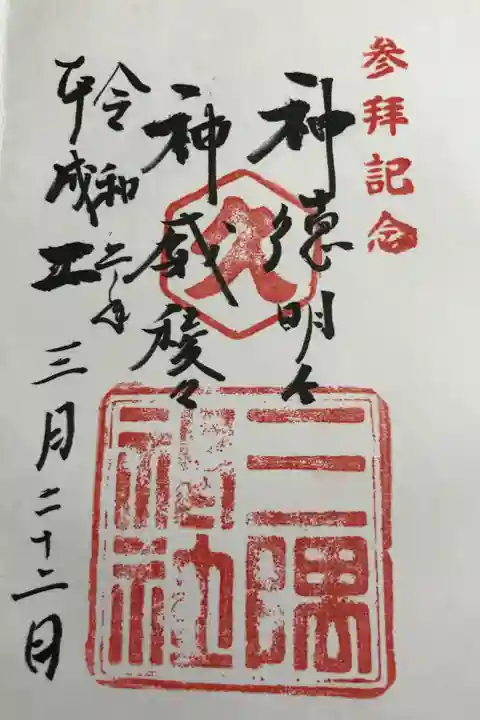 参拝記念
神徳明々
久
神威稜々
令和二年
平成
三月二十二日
三隅
神社